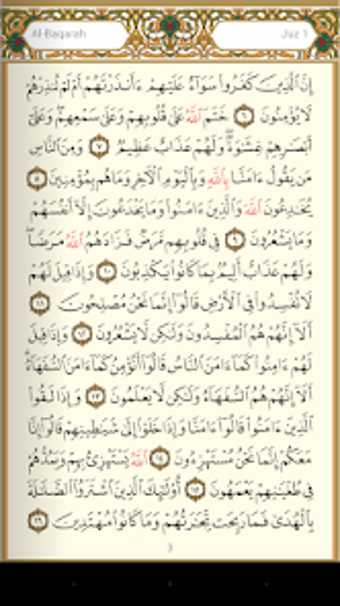 Al-Baqarah
Juz 1
إِنَّ ٱلَّذِينَ كَفَرُوا۟ سَوَآءٌ عَلَيْهِمْ ءَأَنذَرْتَهُمْ أَمْ لَمْ تُنذِرْهُمْ
لَا يُؤْمِنُونَ ٦ خَتَمَ ٱللَّهُ عَلَىٰ قُلُوبِهِمْ وَعَلَىٰ سَمْعِهِمْ ۖ وَعَلَىٰٓ
أَبْصَٰرِهِمْ غِشَٰوَةٌ ۖ وَلَهُمْ عَذَابٌ عَظِيمٌ ٧ وَمِنَ ٱلنَّاسِ
مَن يَقُولُ ءَامَنَّا بِٱللَّهِ وَبِٱلْيَوْمِ ٱلْءَاخِرِ وَمَا هُم بِمُؤْمِنِينَ ٨
يُخَٰدِعُونَ ٱللَّهَ وَٱلَّذِينَ ءَامَنُوا۟ وَمَا يَخْدَعُونَ إِلَّآ أَنفُسَهُمْ
وَمَا يَشْعُرُونَ ٩ فِى قُلُوبِهِم مَّرَضٌ فَزَادَهُمُ ٱللَّهُ مَرَضًا ۖ
وَلَهُمْ عَذَابٌ أَلِيمٌۢ بِمَا كَانُوا۟ يَكْذِبُونَ ١٠ وَإِذَا قِيلَ لَهُمْ
لَا تُفْسِدُوا۟ فِى ٱلْأَرْضِ قَالُوٓا۟ إِنَّمَا نَحْنُ مُصْلِحُونَ ١١
أَلَآ إِنَّهُمْ هُمُ ٱلْمُفْسِدُونَ وَلَٰكِن لَّا يَشْعُرُونَ ١٢ وَإِذَا قِيلَ
لَهُمْ ءَامِنُوا۟ كَمَآ ءَامَنَ ٱلنَّاسُ قَالُوٓا۟ أَنُؤْمِنُ كَمَآ ءَامَنَ ٱلسُّفَهَآءُ ۗ
أَلَآ إِنَّهُمْ هُمُ ٱلسُّفَهَآءُ وَلَٰكِن لَّا يَعْلَمُونَ ١٣ وَإِذَا لَقُوا۟
ٱلَّذِينَ ءَامَنُوا۟ قَالُوٓا۟ ءَامَنَّا وَإِذَا خَلَوْا۟ إِلَىٰ شَيَٰطِينِهِمْ قَالُوٓا۟ إِنَّا
مَعَكُمْ إِنَّمَا نَحْنُ مُسْتَهْزِءُونَ ١٤ ٱللَّهُ يَسْتَهْزِئُ بِهِمْ وَيَمُدُّهُمْ
فِى طُغْيَٰنِهِمْ يَعْمَهُونَ ١٥ أُو۟لَٰٓئِكَ ٱلَّذِينَ ٱشْتَرَوُا۟ ٱلضَّلَٰلَةَ
بِٱلْهُدَىٰ فَمَا رَبِحَت تِّجَٰرَتُهُمْ وَمَا كَانُوا۟ مُهْتَدِينَ ١٦
3